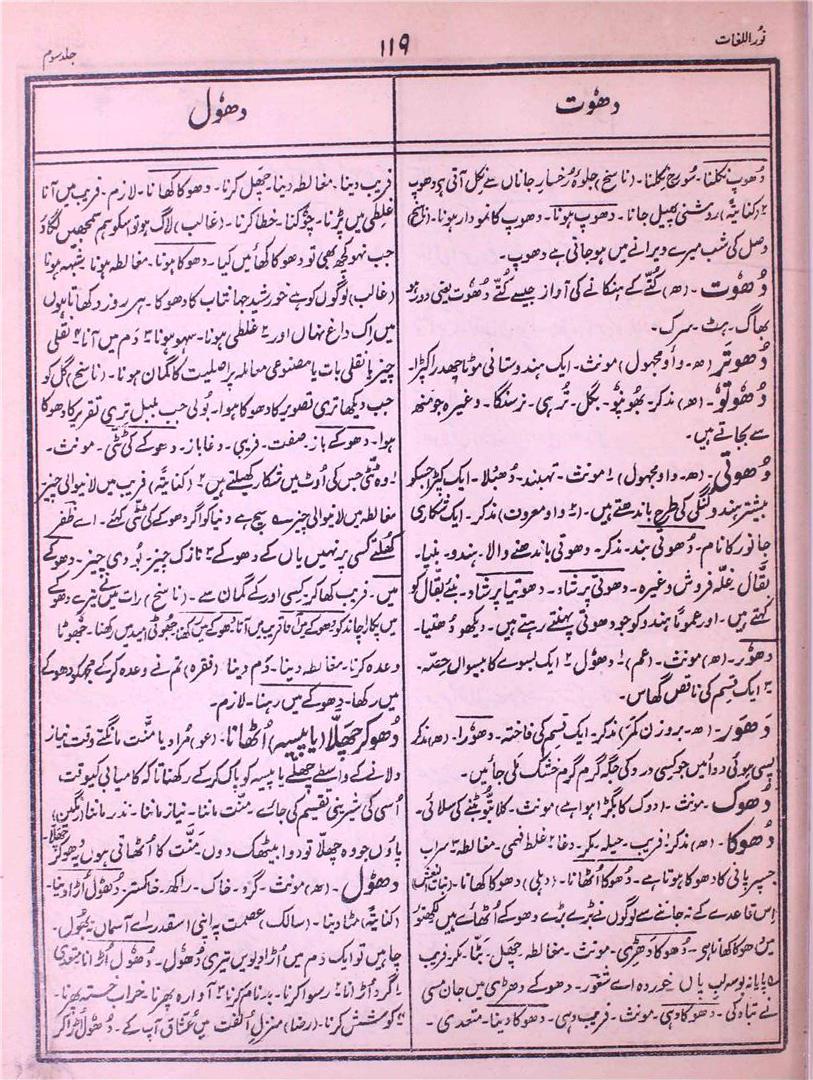 نُورُاللغات
۱۱۹
جلد سوم
دھُوت
دھُول
دُھوپ نکلنا۔ سُورج نکلنا۔ (ناسخ) جلوۂ رُخسارِ جاناں سے نکل آتی ہی دھوپ
۲ (کنایۃً) روشنی پھیل جانا۔ دھوپ ہونا۔ دھوپ کا نمودار ہونا۔ (ناسخ)
وصل کی شب میرے ویرانے میں ہو جاتی ہے دھوپ۔
دُھوت۔ (ھ) کُتّے کے ہنکانے کی آواز جیسے کُتّے دُھوت یعنی دور ہو
بھاگ۔ ہٹ۔ سرک۔
دُھوتَر (ھ۔ واؤ مجہول) مونث۔ ایک ہندوستانی موٹا چھدرا کپڑا۔
دُھوتُو۔ (ھ) مذکر۔ بھُونپُو۔ بگل۔ تُرہی۔ نرسنگا۔ وغیرہ جو منھ
سے بجاتے ہیں۔
دُھوتی۔ (ھ۔ واو مجہول) ۱ مونث۔ تہبند۔ دُھٹلا۔ ایک کپڑا جسکو
بیشتر ہندو لُنگی کی طرح باندھتے ہیں۔ (۲ واو معروف) مذکر۔ ایک شکاری
جانور کا نام۔ دُھوتی بند۔ مذکر۔ دھوتی باندھنے والا۔ ہندو۔ بنیا۔
بقّال۔ غلّہ فروش وغیرہ۔ دھوتی پرشاد۔ دھوتیا پرشاد۔ بنئے بقال کو
کہتے ہیں۔ اور عموماً ہندو کو جو دھوتی پہنتے رہتے ہیں۔ دیکھو دُھتیا۔
دھُوْر۔ (ھ) مونث۔ (عم) ۱ دھُوْل ۲ ایک بسوے کا بیسواں حصّہ۔
۳ ایک قسم کی ناقص گھاس۔
دَھوَر۔ (ھ۔ بروزن کمر) مذکر۔ ایک قسم کی فاختہ۔ دھوْرا۔ (ھ) مذکر
پسی ہوئی دوائیں جو کسی درد کی جگہ گرم گرم خشک ملی جائیں۔
دُھوک۔ مونث۔ (دوک کا بگڑا ہوا ہے) مونث۔ کلابتُّو بٹنے کی سلائی۔
دُھوکا۔ (ھ) مذکر ۱ فریب۔ حیلہ۔ مکر۔ دغا ۲ غلط فہمی۔ مغالطہ ۳ سراب
جسپر پانی کا دھوکا ہوتا ہے۔ دُھوکا اُٹھانا۔ (دہلی) دھوکا کھانا۔ (بنات النعش)
اس قاعدے کے نہ جاننے سے لوگوں نے بڑے بڑے دھوکے اُٹھائے ہیں لکھنؤ
میں دھوکا کھانا ہی۔ دُھوکا دَھڑی۔ مونث۔ مغالطہ۔ چھل۔ بٹّا۔ مکر فریب
پایا نہ بوسہ لب یاں خوردہ اے شعور۔ دھوکے دھڑی میں جان مسی
نے تباہ کی۔ دھوکا دہی۔ مونث۔ فریب دہی۔ دھوکا دینا۔ متعدی۔
فریب دینا۔ مغالطہ دینا۔ چھل کرنا۔ دھوکا کھانا۔ لازم۔ فریب میں آنا
غلطی میں پڑنا۔ چُوکنا۔ خطا کرنا۔ (غالب) لاگ ہو تو اسکو ہم سمجھیں لگاؤ
جب نہو کچھ بھی تو دھوکا کھائیں کیا۔ دھوکا ہونا۔ مغالطہ ہونا ۔ شبہہ ہونا
(غالب) لوگوں کو ہے خورشیدِ جہانتاب کا دھوکا۔ ہر روز دکھاتا ہوں
میں اک داغ نہاں اور ۲ غلطی ہونا۔ سہو ہونا ۳ دَم میں آنا ۴ نقلی
چیز یا نقلی بات یا مصنوعی معاملہ پر اصلیت کا گمان ہونا۔ (ناسخ) گل کو
جب دیکھا تری تصویر کا دھوکا ہوا۔ بُولی جب بلبل تری تقریر کا دھوکا
ہوا۔ دھوکے باز۔ صفت۔ فریبی۔ دغا باز۔ دھوکے کی ٹٹّی۔ مونث۔
۱ وہ ٹٹّی جس کی اُوٹ میں شکار کھیلتے ہیں ۲ (کنایۃً) فریب میں لانیوالی چیز
مغالطہ میں لانیوالی چیز ؎ سچ ہے دنیا کو اگر دھوکے کی ٹٹّی کہئے۔ اے ظفر
کُھلتے کسی پر نہیں یاں کے دھوکے ۳ نازک چیز۔ بُودی چیز۔ دھوکے
میں۔ فریب کھا کر۔ کسی اور کے گمان سے۔ (ناسخ) رات میں نے تیرے دھوکے
میں پکارا چاند کو دھوکے میں آنا فریب میں آنا دھوکے میں رکھنا جھوٹی امید میں رکھنا۔ جُھوٹا
وعدہ کرنا۔ مغالطہ دینا۔ دَم دینا۔ (فقرہ) تم نے وعدہ کر کے مجھکو دھوکے
میں رکھا۔ دھوکے میں رہنا۔ لازم۔
دُھوکر چَھلّا (یا پیسہ) اُٹھانا۔ (عو) مُراد یا منّت مانگتے وقت نیاز
دلانے کے واسطے چھلّے یا پیسہ کو پاک کر کے رکھنا تاکہ کامیابی کیوقت
اُسی کی شیرینی تقسیم کی جائے۔ منّت ماننا۔ نیاز ماننا۔ نذر ماننا (رنگین)
پاؤں جو وہ چھلّا تو دوابیٹھک دوں۔ مَنّت کا اُٹھاتی ہوں دھوکر چھلّا۔
دھُوْل۔ (ھ) مونث۔ گرد۔ خاک۔ راکھ۔ خاکستر۔ دُھوْل اُڑا دینا۔
(کنایۃً) مٹا دینا۔ (سالک) عصمت پہ اپنی اسقدر اے آسماں نہ پھُول۔
چاہیں تو ایک دَم میں اُڑا دیویں تیری دُھول۔ دُھوْل اُڑانا متعدی
۱ گرد اُڑانا ۲ رسوا کرنا۔ بدنام کرنا ۳ آوارہ پھرنا۔ خراب خستہ پھرنا۔
۴ کوشش کرنا۔ (رضا) منزلِ اُلفت میں عشّاق آپ کے۔ دُھول اُڑا کر